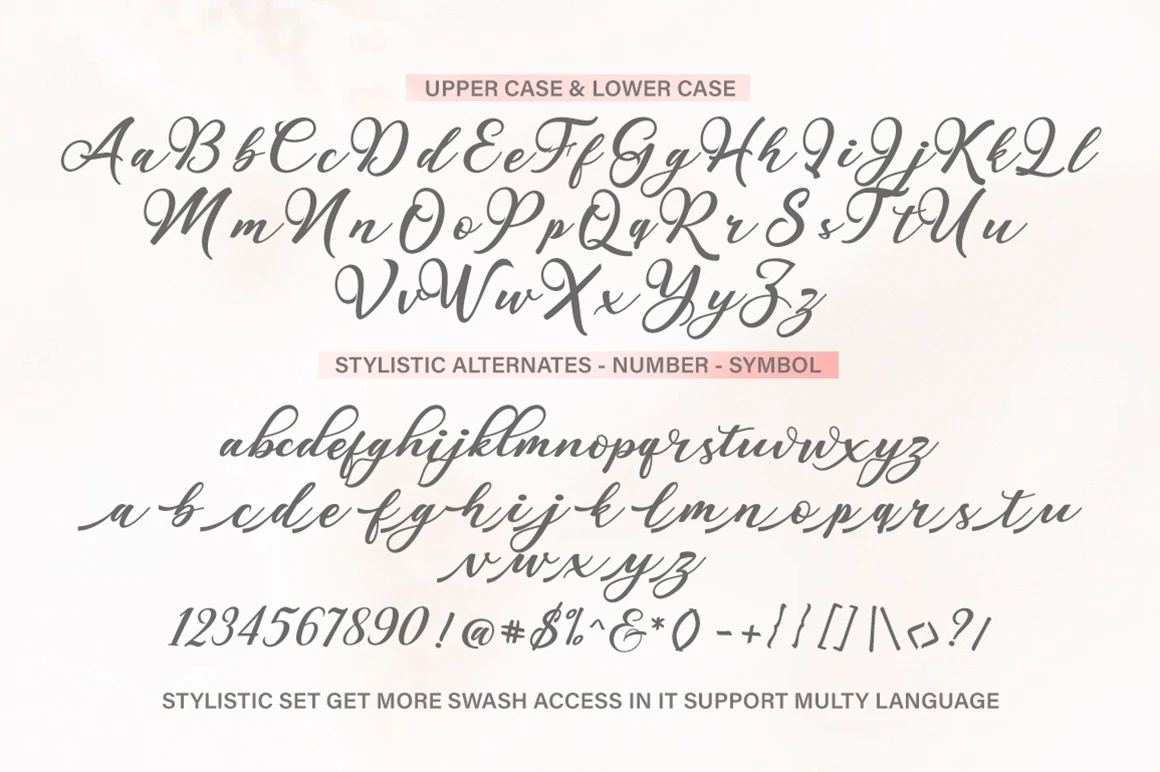 UPPER CASE & LOWER CASE
AaBbCcDdEeFfGgHhIiJjKkLl
MmNnOoPpQqRrSsTtUu
VvWwXxYyZz
STYLISTIC ALTERNATES - NUMBER - SYMBOL
abcdefghijklmnopqrstuvwxyz
a b c d e f g h i j k l m n o p q r s t u
v w x y z
1234567890!@#$%^&*() -+{}[]|\<>?/
STYLISTIC SET GET MORE SWASH ACCESS IN IT SUPPORT MULTY LANGUAGE